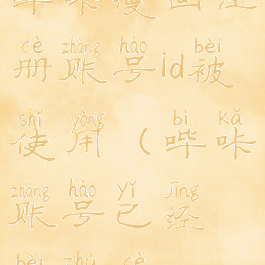 哔咔漫画注
cè zhàng hào bèi
册账号id被
shǐ yòng bì kǎ
使用（哔咔
zhàng hào yǐ jīng
账号已经
bèi zhù cè